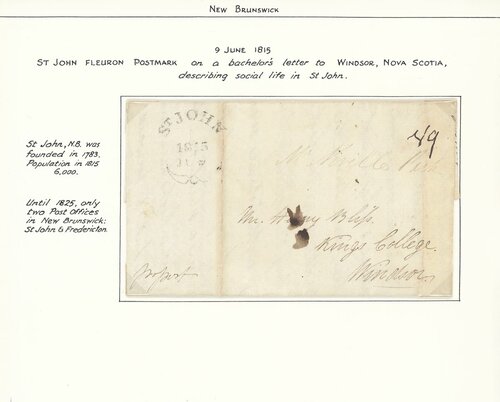 New Brunswick
9 June 1815
St John fleuron postmark on a bachelor's letter to Windsor, Nova Scotia,
describing social life in St John.
St John, N.B. was
founded in 1783.
Population in 1815
6,000.
Until 1825, only
two Post Offices
in New Brunswick:
St John & Fredericton.
ST JOHN
1815
N/9
Mr. Henry Bliss
Kings College
Windsor